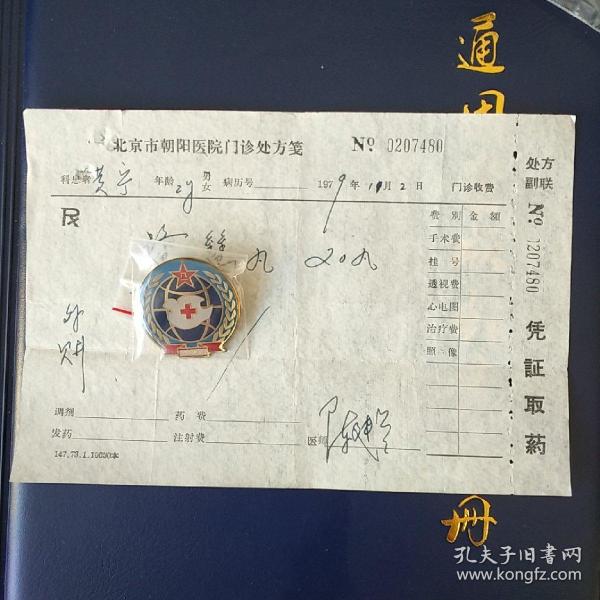 通用
册
北京市朝阳医院门诊处方笺 No 0207480
科患者 年龄 2y 男 女 病历号 1979年 11月2日 门诊收费
处方
副联
No 0207480
凭証取药
R
丸 20丸
费别 金额
手术费
挂号
透视费
心电图
治疗费
照像
调剂 药费
发药 注射费 医师
147.73.1.10000本
孔夫子旧书网
www.kongfz.com